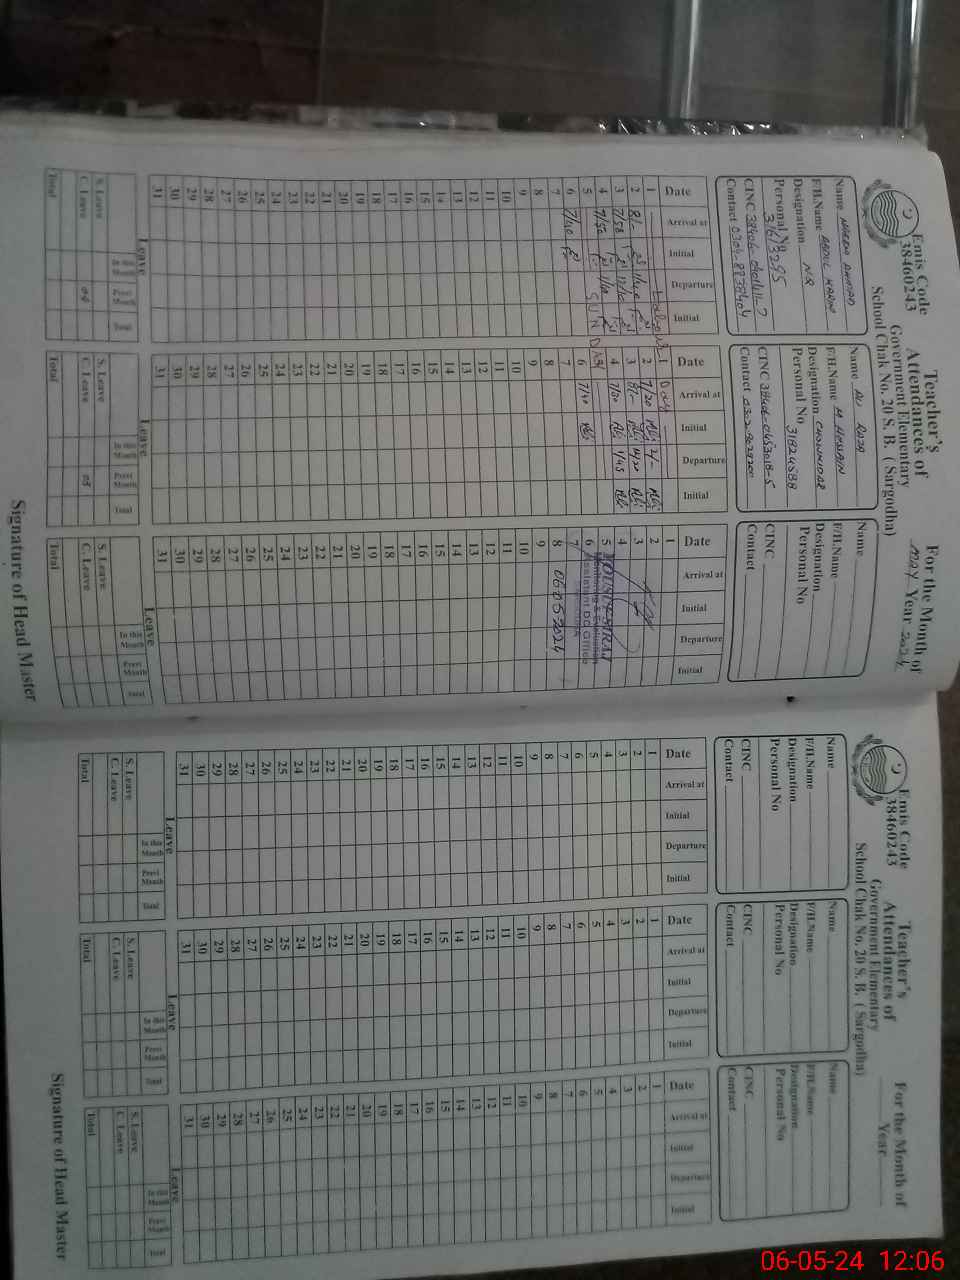 Emis Code
38460243
Teacher's
Attendances of
Government Elementary
School Chak No. 20 S. B. ( Sargodha)
For the Month of
MAY Year 2024
Name
F/H.Name ABDUL KARIM
Designation N.Q
Personal No
31613295
CINC
Contact
Name ALI RAZA
F/H.Name M HUSSAIN
Designation CHOWKIDAR
Personal No
31824588
CINC 38406-0653018-5
Contact
Name
F/H.Name
Designation
Personal No
CINC
Contact
Date Arrival at Initial Departure Initial
Date Arrival at Initial Departure Initial
Date Arrival at Initial Departure Initial
1 Labour Day 1 1
2 8/- 2 7/20 2/- 2
3 7/50 3 8/- 3
4 7/50 4 7/50 1/45 4
5 SUNDAY 5
6 7/40 6 7/40 6 Monitoring & Evaluation
7 7 7 Assistant DC Office
8 8 8 06 05 2024
9 9 9
10 10 10
11 11 11
12 12 12
13 13 13
14 14 14
15 15 15
16 16 16
17 17 17
18 18 18
19 19 19
20 20 20
21 21 21
22 22 22
23 23 23
24 24 24
25 25 25
26 26 26
27 27 27
28 28 28
29 29 29
30 30 30
31 31 31
Leave Leave Leave
In this Month Previ Month Total
In this Month Previ Month Total
In this Month Previ Month Total
S. Leave S. Leave S. Leave
C. Leave 04 C. Leave 05 C. Leave
Total Total Total
Signature of Head Master
Emis Code
38460243
Teacher's
Attendances of
Government Elementary
School Chak No. 20 S. B. ( Sargodha)
For the Month of
Year
Name Name Name
F/H.Name F/H.Name F/H.Name
Designation Designation Designation
Personal No Personal No Personal No
CINC CINC CINC
Contact Contact Contact
Date Arrival at Initial Departure Initial
Date Arrival at Initial Departure Initial
Date Arrival at Initial Departure Initial
1 1 1
2 2 2
3 3 3
4 4 4
5 5 5
6 6 6
7 7 7
8 8 8
9 9 9
10 10 10
11 11 11
12 12 12
13 13 13
14 14 14
15 15 15
16 16 16
17 17 17
18 18 18
19 19 19
20 20 20
21 21 21
22 22 22
23 23 23
24 24 24
25 25 25
26 26 26
27 27 27
28 28 28
29 29 29
30 30 30
31 31 31
Leave Leave Leave
In this Month Previ Month Total
In this Month Previ Month Total
In this Month Previ Month Total
S. Leave S. Leave S. Leave
C. Leave C. Leave C. Leave
Total Total Total
Signature of Head Master
06-05-24 12:06